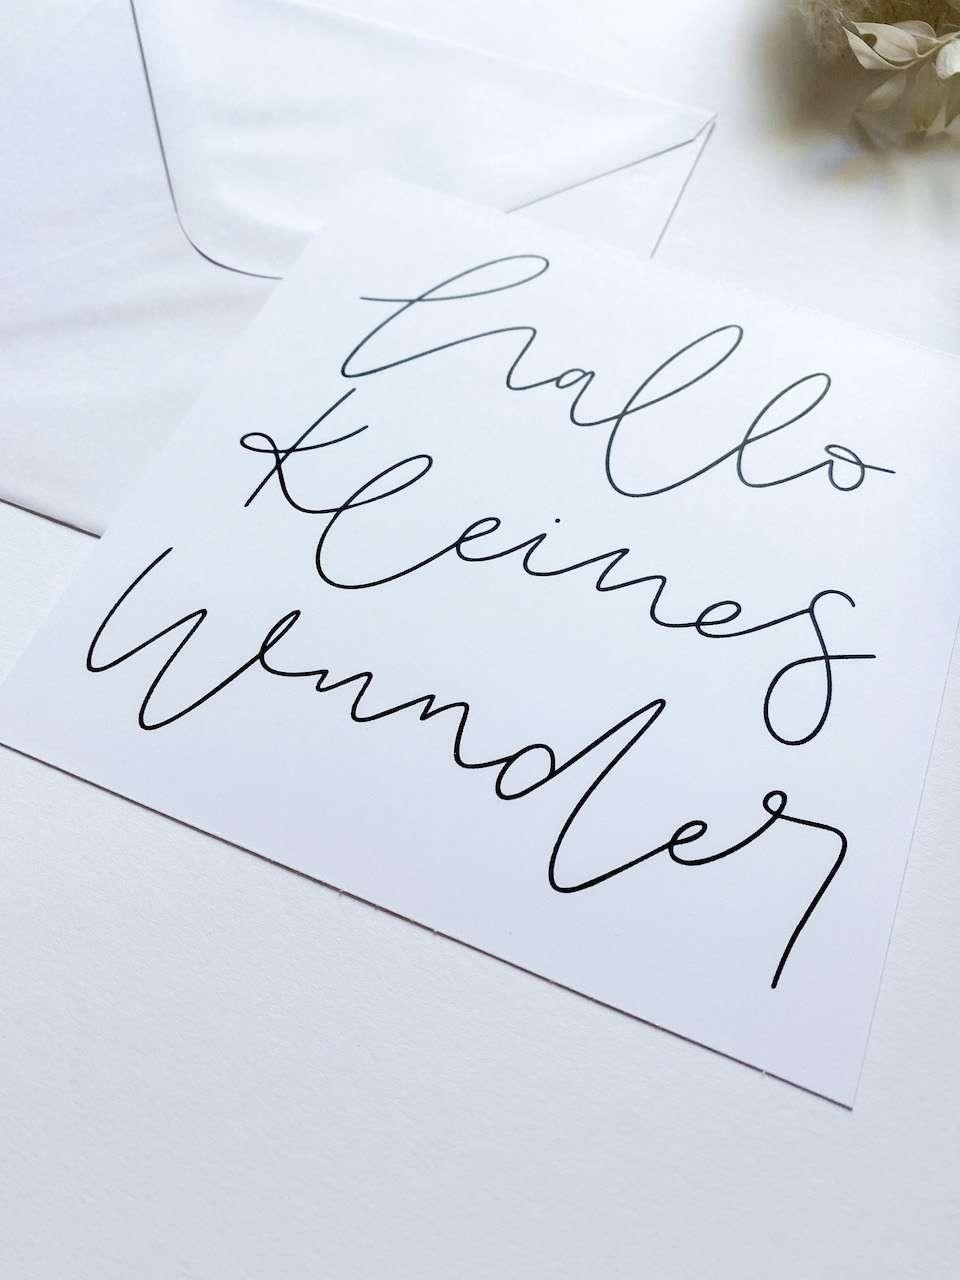 hallo
kleines
Wunder